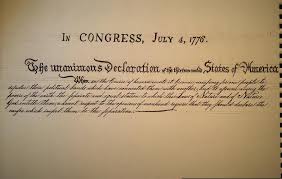 In CONGRESS, July 4, 1776.
The unanimous Declaration of the thirteen united States of America
When in the Course of human events it becomes necessary for one people to
dissolve the political bands which have connected them with another, and to assume among the
powers of the earth, the separate and equal station to which the Laws of Nature and of Nature's
God entitle them, a decent respect to the opinions of mankind requires that they should declare the
causes which impel them to the separation.